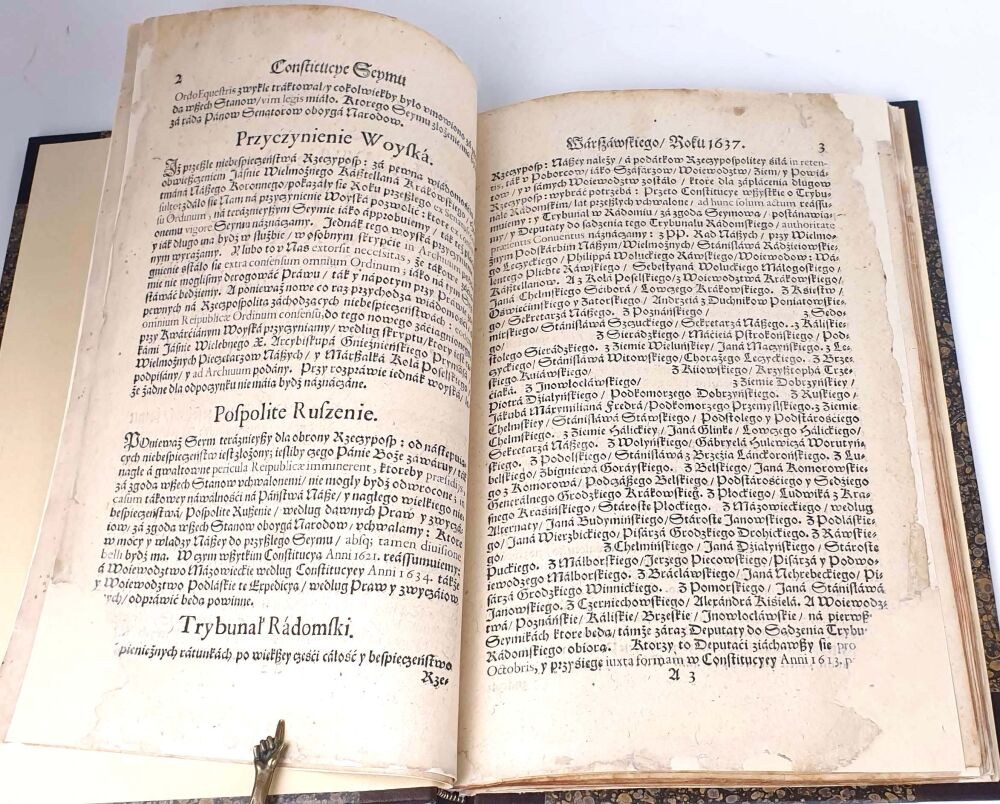 2
Constitucye Seymu
Ordo Equestris zwykle tráktowal/ y cokolwiekby bylo vmowiono zá
da wßech Stanow/ vim legis miáło. Ktorego Seymu złożenie
zá rádą Pánow Senatorow oboygá Narodow.
Przyczynienie Woyská.
IŻ przeßłe niebespieczeństwá Rzeczyposp: zá pewną wiádomośćią
obwießczeniem Jáśnie Wielmożnego Káßtellaná Krákowskiego
tmáná Náßego Koronnego/ pokazáły sie Roku przeßłego ex Senatus
sulto: zdáło sie Nam ná przyczynienie Woyská pozwolić; ktore ex
su Ordinum, ná teráznieyßym Seymie iáko ápprobuiemy/ ták też
onemu vigore Seymu náznáczamy. Jednák tego woyská przyczynienie
y iák długo ma bydź w służbie/ w osobnym skrypcie in Archiuum
nym wyrażamy. X lubo to v Nas extorsit necessitas, że tákowe
gnienie sstáło sie extra consensum omnium Ordinum; iáko ná tym
nie nie mogliśmy derogowáć Práwu/ ták y nápotym przy Práwie
stáwáć będziemy. A ponieważ nowe co raz przychodzą wiádomośći
pewnych ná Rzeczpospolitą záchodzących niebespieczeństwách:
omnium Reipublicæ Ordinum consensu, do tego nowego záćiągnionego
przy Kwárćianym Woyská przyczyniamy/ według skryptu/ ktory iest
kámi Jáśnie Wielebnego X. Arcybiskupá Gnieźnieńskiego Prymásá
Wielmożnych Pieczętarzow Náßych/ y Márßałká Kołá Poselskiego
podpisány/ y ad Archiuum podány. Przy rozpráwie iednák woyská/
że żadne dla odpoczynku nie máią bydź náznáczáne.
Pospolite Ruszenie.
POnieważ Seym teráznieyßy dla obrony Rzeczyposp: od nástępuią-
cych niebespieczeństw iest złożony; iesliby czego Pánie Boże záwáruy/ ták
nagłe á gwałtowne pericula Reipublicæ imminerent, ktoreby præsidijs,
zá zgodą wßech Stanow vchwalonemi/ nie mogły bydź odwrocone; in
casum tákowey nawálnośći ná Páństwá Náße/ y nagłego wielkiego nie-
bespieczeństwá/ Pospolite Rußenie/ według dawnych Praw y zwyczá-
iow/ zá zgodą wßech Stanow oboygá Narodow/ vchwalamy: Ktore
w mocy y władzy Náßey do przyßłego Seymu/ absq; tamen diuisione
belli bydź ma. W czym wßytkim Constitucyą Anni 1621. reássumuiemy:
á Woiewodztwo Mázowieckie według Constitucyey Anni 1634. tákże
y Woiewodztwo Podláskie te Expedicyą/ według Praw y zwyczáiow
/ odpráwić będą powinne.
Trybunał Rádomski.
pieniężnych rátunkách po większey częśći cáłość y bespieczeństwo
Rze-
Wárßáwskiego/ Roku 1637.
3
Rzeczyposp: Náßey należy/ á podátkow Rzeczypospolitey siłá in reten-
tis, ták v Poborcow/ iáko Száfárzow/ Woiewodztw/ Ziem/ y Powiá-
tow/ y v sámych Woiewodztw zostáło/ ktore dla zápłácenia długow
Rzeczyposp: wybráć potrzebá: Przeto Constitucye wßyskie o Trybu-
nale Rádomskim/ lat przeßłych vchwalone/ ad hunc solum actum reássu-
muiemy: y Trybunał w Rádomiu/ zá zgodą Seymową/ postánáwia-
my/ y Deputaty do sądzenia tego Trybunału Rádomskiego/ authoritate
præsentis Conuentus náznáczamy: z PP. Rad Náßych/ przy Wielmo-
żnym Podskárbim Náßym/ Wielmożnych/ Stánisłáwá Rádzieiowskie-
go Łęczyckiego/ Philippá Wołuckiego Ráwskiego/ Woiewodow: Wá-
lentego Plichtę Ráwskiego/ Sebestyaná Wołuckiego Máłogoskiego/
Káßtellanow. A z Kołá Poselskiego/ z Woiewodztwá Krákowskiego/
Janá Chełmskiego Sćiborá/ Łowczego Krákowskiego. Z Księstw/
Oświecimskiego y Zátorskiego/ Andrzeiá z Duchnikow Poniátowskie-
go/ Sekretarzá Náßego. Z Poznáńskiego/ z Sedo-
mirskiego/ Stánisłáwá Szczuckiego/ Sekretarzá Náßego. Z Káliskie-
go/ Z Sierádzkiego/ Máćieiá Pstrokońskiego/ Pod-
stolego Sierádzkiego. Z Ziemie Wieluńskiey/ Janá Máczyńskiego. Z Łe-
czyckiego/ Stánisłáwá Witowskiego/ Chorążego Łęczyckiego. Z Brze-
skiego Kuiáwskiego/ Z Kiiowskiego/ Krzyßtophá Trze-
ćiáká. Z Inowłocłáwskiego/ z Ziemie Dobrzyńskiey/
Piotrá Dziáłyńskiego/ Podkomorzego Dobrzyńskiego. Z Ruskiego/
Jákubá Máxymilianá Fredrá/ Podkomorzego Przemyskiego. Z Ziemie
Chełmskiey/ Stánisłáwá Stáwskiego/ Podstolego y Podstárośćiego
Chełmskiego. Z Ziemie Hálickiey/ Janá Glinkę/ Łowczego Hálickiego/
Sekretarzá Náßego. Z Wołyńskiego/ Gábryelá Hulewiczá Worutyń-
skiego. Z Podolskiego/ Stánisłáwá z Brzeźia Lánckorońskiego. Z Lu-
belskiego/ Zbigniewá Goráyskiego. Z Bełskiego/ Janá Komorowskie-
go z Komorowá/ Podczáßego Bełskieg. Podstárośćiego y Sędziego
Generalnego Grodzkiego Krákowskieg. Z Płockiego/ Ludwiká z Krá-
snego Krásińskiego/ Stárostę Płockiego. Z Mázowieckiego/ według
Alternaty/ Janá Budymińskiego/ Stárostę Janowskiego. Z Podláskie-
go/ Janá Wierzbickiego/ Pisárzá Grodzkiego Drohickiego. Z Ráwskie-
go/ Z Chełmińskiego/ Janá Dziáłyńskiego/ Stárostę
Puckiego. Z Málborskiego/ Jerzego Piecowskiego/ Pisárzá y Podwo-
iewodzego Málborskiego. Z Brácłáwskiego/ Janá Nehrebeckiego/ Pi-
sárzá Grodzkiego Winnickiego. Z Pomorskiego/ Janá Stánisłáwá
Janowskiego. Z Czerniechowskiego/ Alexándrá Kiśielá. A Woiewodz-
twá/ Poznáńskie/ Káliskie/ Brzeskie/ Jnowłocłáwskie/ ná pierwß-
Seymikách ktore będą/ támże záraz Deputaty do Sądzenia Trybu-
Rádomskiego obiorą. Ktorzy to Deputáći ziáchawßy się pro
Octobris, y przyśięgę iuxta formam w Constitucyey Anni 1613. p
A 3